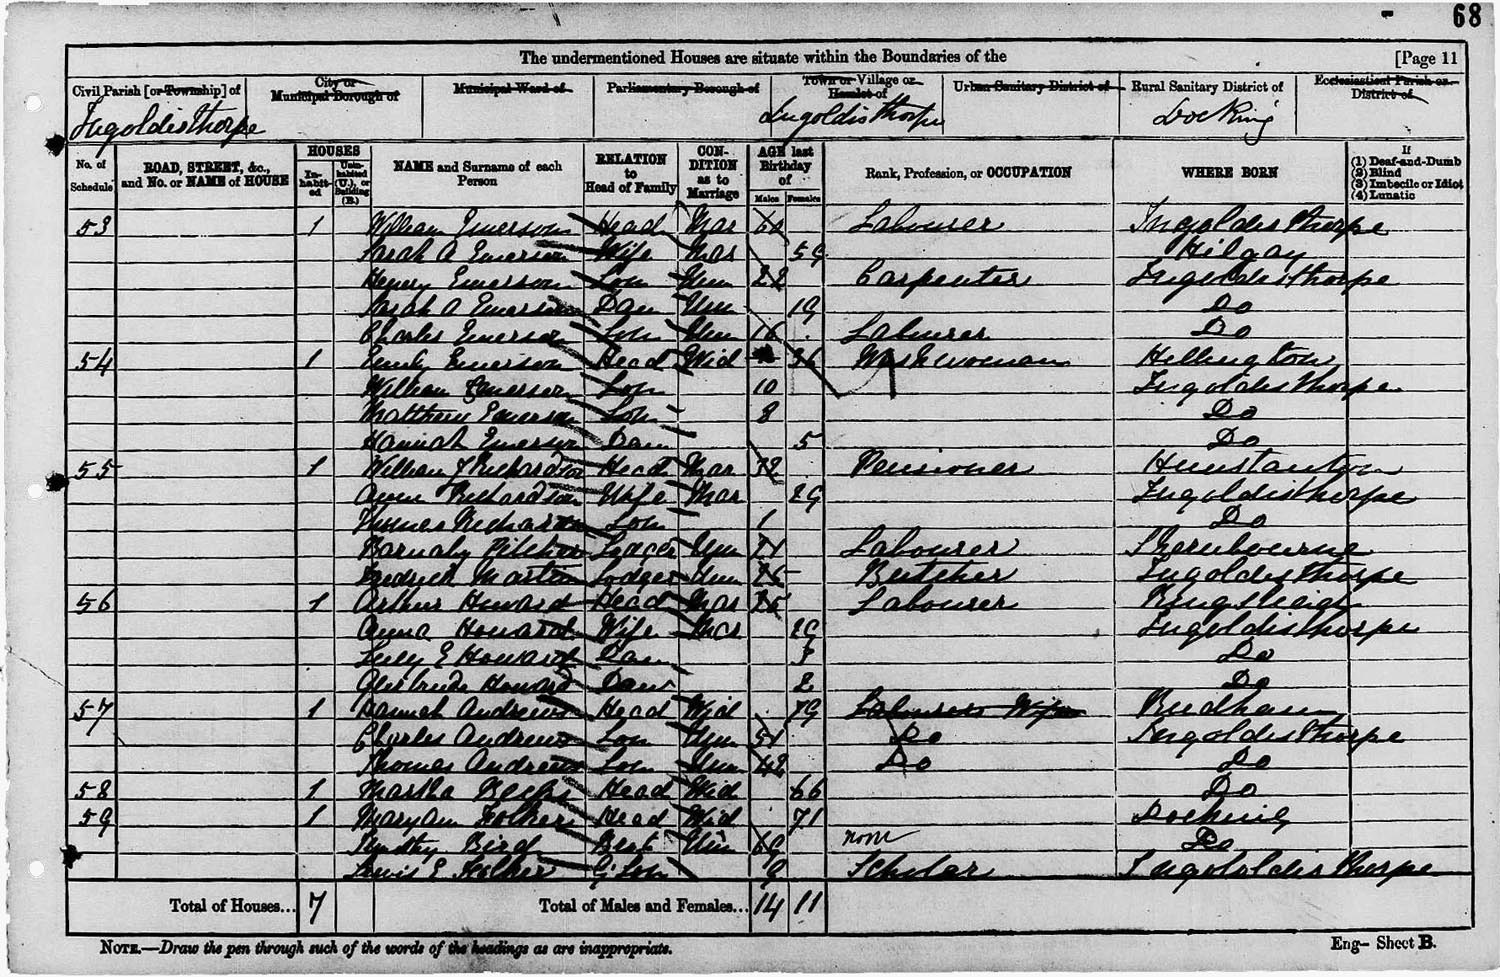 68
The undermentioned Houses are situate within the Boundaries of the [Page 11
Civil Parish [or Township] of City or Municipal Borough of Municipal Ward of Parliamentary Borough of Town or Village or Hamlet of Urban Sanitary District of Rural Sanitary District of Ecclesiastical Parish or District of
Ingoldisthorpe Ingoldisthorpe Docking
No. of Schedule ROAD, STREET, &c., and No. or NAME of HOUSE HOUSES Inhabited Uninhabited (U.), or Building (B.) NAME and Surname of each Person RELATION to Head of Family CONDITION as to Marriage AGE last Birthday of Males Females Rank, Profession, or OCCUPATION WHERE BORN If (1) Deaf-and-Dumb (2) Blind (3) Imbecile or Idiot (4) Lunatic
53 1 William Emerson Head Mar 60 Labourer Ingoldisthorpe
Sarah A Emerson Wife Mar 59 Hilgay
Henry Emerson Son Unm 22 Carpenter Ingoldisthorpe
Sarah A Emerson Daur Unm 19 Do
Charles Emerson Son Unm 16 Labourer Do
54 1 Emily Emerson Head Wid 36 Washwoman Hillington
William Emerson Son 10 Ingoldisthorpe
Matthew Emerson Son 8 Do
Hannah Emerson Daur 5 Do
55 1 William J Richardson Head Mar Pensioner Hunstanton
Richardson Wife Mar 29 Ingoldisthorpe
Thomas Richardson Son 1 Do
Barnaby Pilcher Lodger Unm Labourer Shernbourne
Fredrick Martin Lodger Unm 25 Butcher Ingoldisthorpe
56 1 Arthur Howard Head Mar 25 Labourer
Anna Howard Wife Mar 29 Ingoldisthorpe
Lily E Howard Daur Do
Gertrude Howard Daur 2 Do
57 1 Hannah Andrews Head Wid 79 Labourers Wife
Charles Andrews Son Unm 51 Do Ingoldisthorpe
Thomas Andrews Son Unm 42 Do Do
58 1 Martha Head Wid 66 Do
59 1 Maryann Head Wid 71 Docking
Timothy Bird Unm 69 none Do
Lewis E G Son 9 Scholar Ingoldisthorpe
Total of Houses... 7 Total of Males and Females... 14 11
NOTE.—Draw the pen through such of the words of the headings as are inappropriate. Eng— Sheet B.